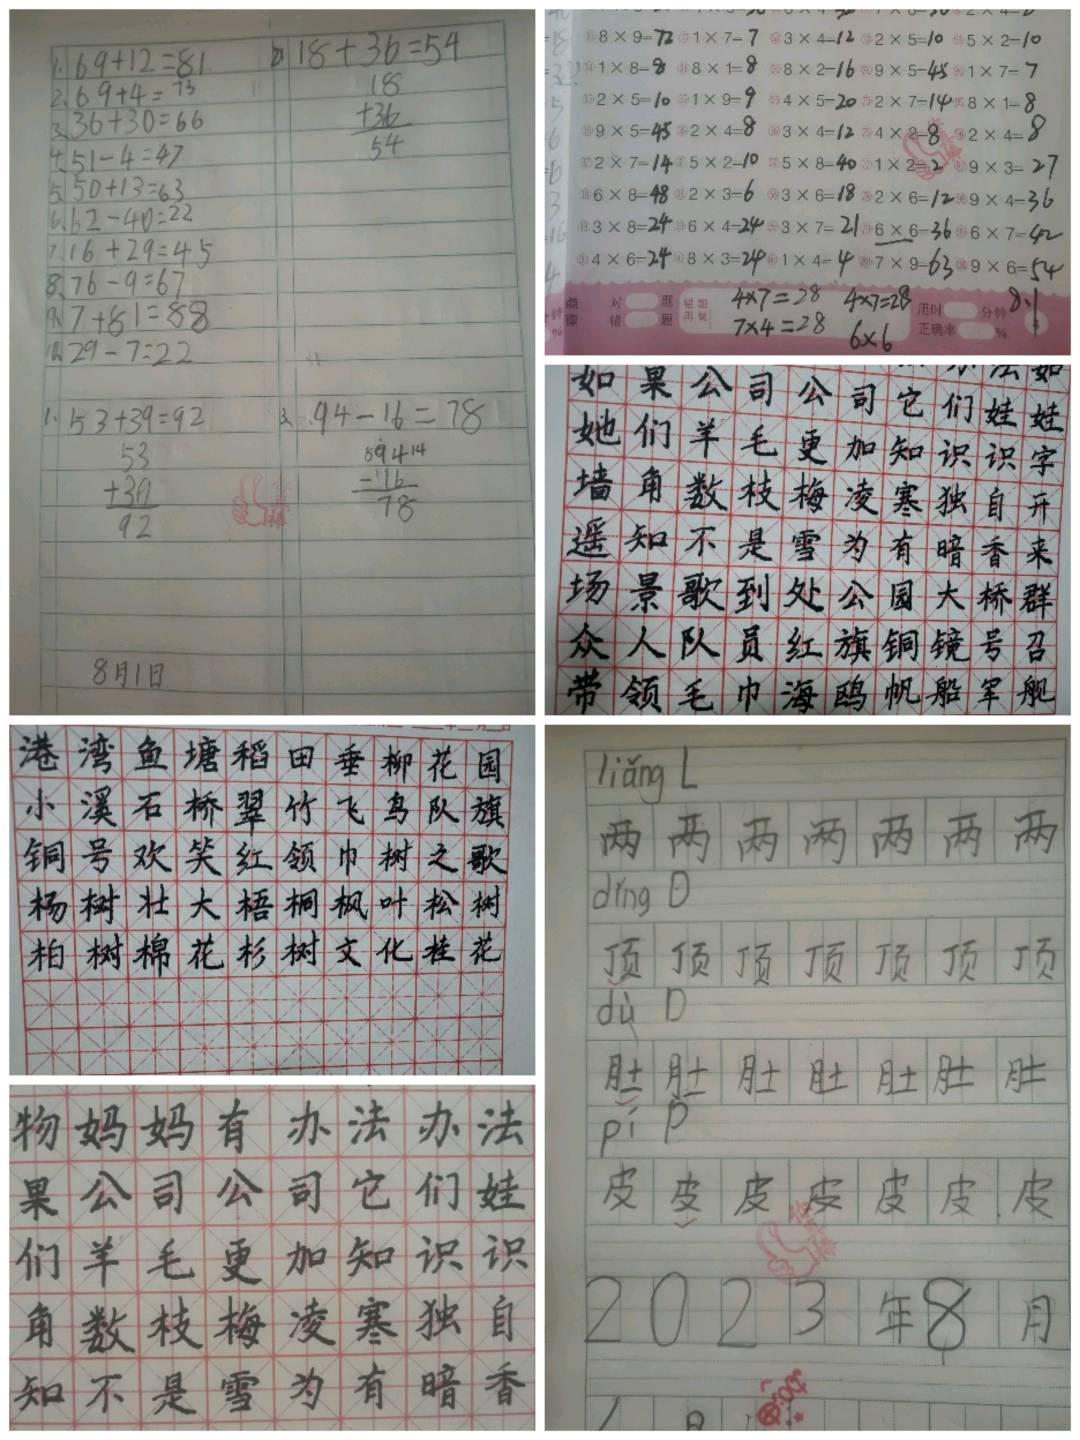 1. 69+12=81
2. 69+4=73
3. 36+30=66
4. 51-4=47
5. 50+13=63
6. 62-40=22
7. 16+29=45
8. 76-9=67
9. 7+81=88
10. 29-7=22
1. 53+39=92
53
+39
92
8月1日
2. 18+36=54
18
+36
54
3. 94-16=78
78
8×9=72 1×7=7 3×4=12 2×5=10 5×2=10
1×8=8 8×1=8 8×2=16 9×5=45 1×7=7
2×5=10 1×9=9 4×5=20 2×7=14 8×1=8
9×5=45 2×4=8 3×4=12 4×2=8 2×4=8
2×7=14 5×2=10 5×8=40 1×2=2 9×3=27
6×8=48 2×3=6 3×6=18 2×6=12 9×4=36
3×8=24 6×4=24 3×7=21 6×6=36 6×7=42
4×6=24 8×3=24 1×4=4 7×9=63 9×6=54
对 逛 错题 4×7=28 4×7=28 用时 分钟 8.1
错 题 再现 7×4=28 6×6 正确率 %
如果公司公司它们娃娃
她们羊毛更加知识识字
墙角数枝梅凌寒独自开
遥知不是雪为有暗香来
场景歌到处公园大桥群
众人队员红旗铜镜号召
带领毛巾海鸥帆船军舰
港湾鱼塘稻田垂柳花园
小溪石桥翠竹飞鸟队旗
铜号欢笑红领巾树之歌
杨树壮大梧桐枫叶松树
柏树棉花杉树文化桂花
物妈妈有办法办法
果公司公司它们娃
们羊毛更加知识识
角数枝梅凌寒独自
知不是雪为有暗香
liǎng L
两两两两两两两
dǐng D
顶顶顶顶顶顶顶
dù D
肚肚肚肚肚肚肚
pí P
皮皮皮皮皮皮皮
2023年8月